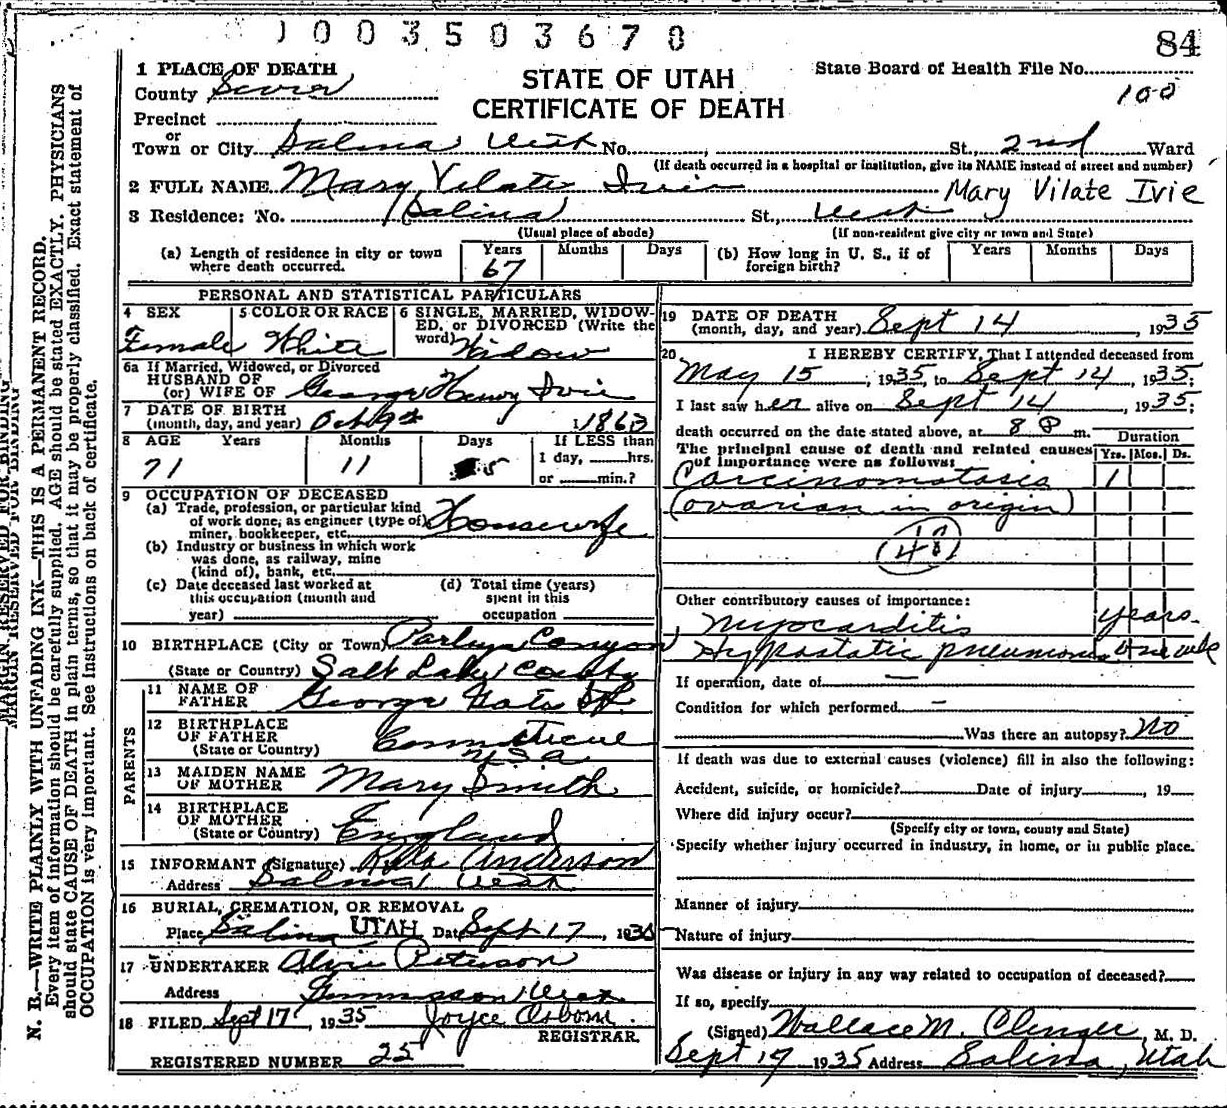 1003503670
84
STATE OF UTAH
CERTIFICATE OF DEATH
State Board of Health File No.
100
1 PLACE OF DEATH
County Sevier
Precinct
or
Town or City Salina Utah No. , St., 2nd Ward
(If death occurred in a hospital or institution, give its NAME instead of street and number)
2 FULL NAME Mary Vilate Ivie Mary Vilate Ivie
3 Residence: No. Salina St., Utah
(Usual place of abode) (If non-resident give city or town and State)
(a) Length of residence in city or town where death occurred. Years 67 Months Days
(b) How long in U. S., if of foreign birth? Years Months Days
PERSONAL AND STATISTICAL PARTICULARS
4 SEX Female
5 COLOR OR RACE White
6 SINGLE, MARRIED, WIDOW-
ED, or DIVORCED (Write the
word) Widow
6a If Married, Widowed, or Divorced
HUSBAND OF
(or) WIFE OF George Henry Ivie
7 DATE OF BIRTH
(month, day, and year) Oct 9th 1863
8 AGE Years Months Days If LESS than
71 11 5 1 day, hrs.
or min.?
9 OCCUPATION OF DECEASED
(a) Trade, profession, or particular kind
of work done, as engineer (type of) Housewife
miner, bookkeeper, etc.
(b) Industry or business in which work
was done, as railway, mine
(kind of), bank, etc.
(c) Date deceased last worked at
this occupation (month and
year)
(d) Total time (years)
spent in this
occupation
10 BIRTHPLACE (City or Town) Parleys Canyon
(State or Country) Salt Lake County
PARENTS
11 NAME OF
FATHER George
12 BIRTHPLACE
OF FATHER Connecticut
(State or Country) USA
13 MAIDEN NAME
OF MOTHER Mary Smith
14 BIRTHPLACE
OF MOTHER
(State or Country) England
15 INFORMANT (Signature) Anderson
Address Salina Utah
16 BURIAL, CREMATION, OR REMOVAL
Place Salina UTAH Date Sept 17, 1935
17 UNDERTAKER Peterson
Address Gunnison Utah
18 FILED Sept 17, 1935 Joyce Osborn.
REGISTRAR.
REGISTERED NUMBER 25
19 DATE OF DEATH
(month, day, and year) Sept 14, 1935
20 I HEREBY CERTIFY, That I attended deceased from
May 15, 1935, to Sept 14, 1935;
I last saw her alive on Sept 14, 1935;
death occurred on the date stated above, at 8 P m.
The principal cause of death and related causes
of importance were as follows:
Duration
Yrs. Mos. Ds.
Carcinomatosis 1
(ovarian in origin)
Other contributory causes of importance:
Myocarditis years.
Hypostatic pneumonia
If operation, date of —
Condition for which performed —
Was there an autopsy? No
If death was due to external causes (violence) fill in also the following:
Accident, suicide, or homicide? Date of injury , 19
Where did injury occur?
(Specify city or town, county and State)
Specify whether injury occurred in industry, in home, or in public place.
Manner of injury
Nature of injury
Was disease or injury in any way related to occupation of deceased?
If so, specify
(Signed) Wallace M. Clinger, M. D.
Sept 17 1935 Address Salina, Utah
MARGIN RESERVED FOR BINDING
N. B.—WRITE PLAINLY WITH UNFADING INK—THIS IS A PERMANENT RECORD.
Every item of information should be carefully supplied. AGE should be stated EXACTLY. PHYSICIANS
should state CAUSE OF DEATH in plain terms, so that it may be properly classified. Exact statement of
OCCUPATION is very important. See instructions on back of certificate.